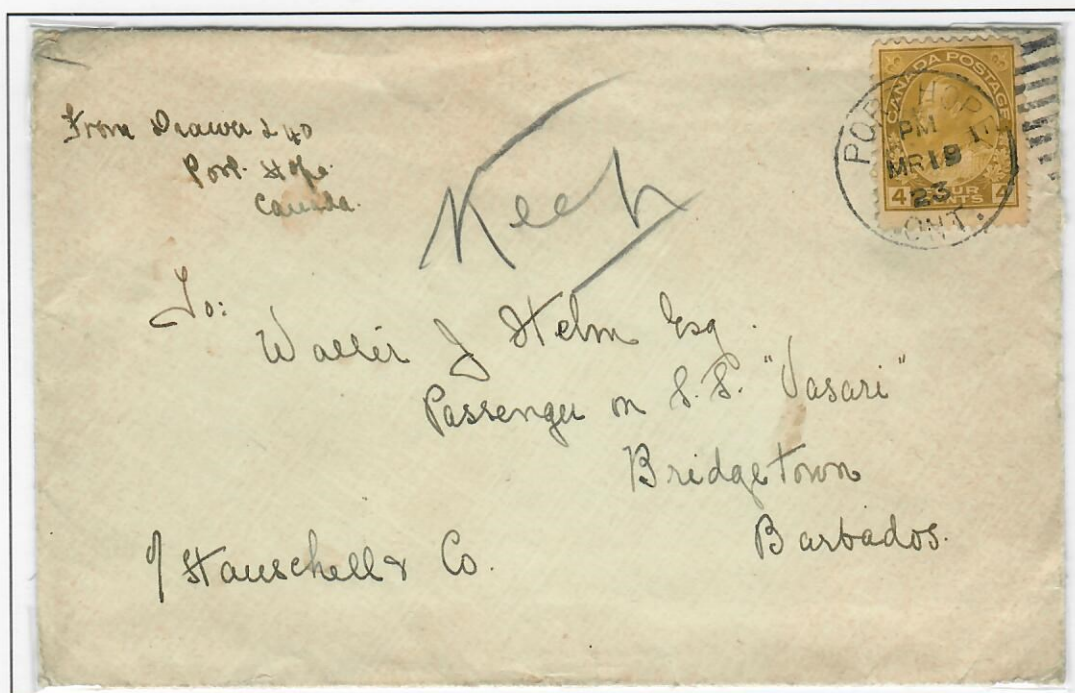 From Drawer 240
Port Hope
Canada.
Keep
CANADA POSTAGE
4 FOUR CENTS 4
PORT HOPE
PM 1
MR 19
23
ONT.
To:
Walter J Helm Esq.
Passenger on S.S. "Vasari"
Bridgetown
Barbados.
c/ Hanschell & Co.